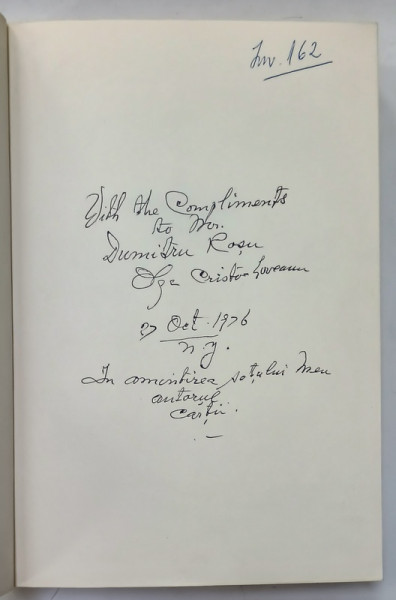 Inv. 162
With the Compliments
to Mr.
Dumitru Roșu
Olga Cristo-Loveanu
27 Oct. 1976
N.Y.
In amintirea soțului meu
autorul
cărții.